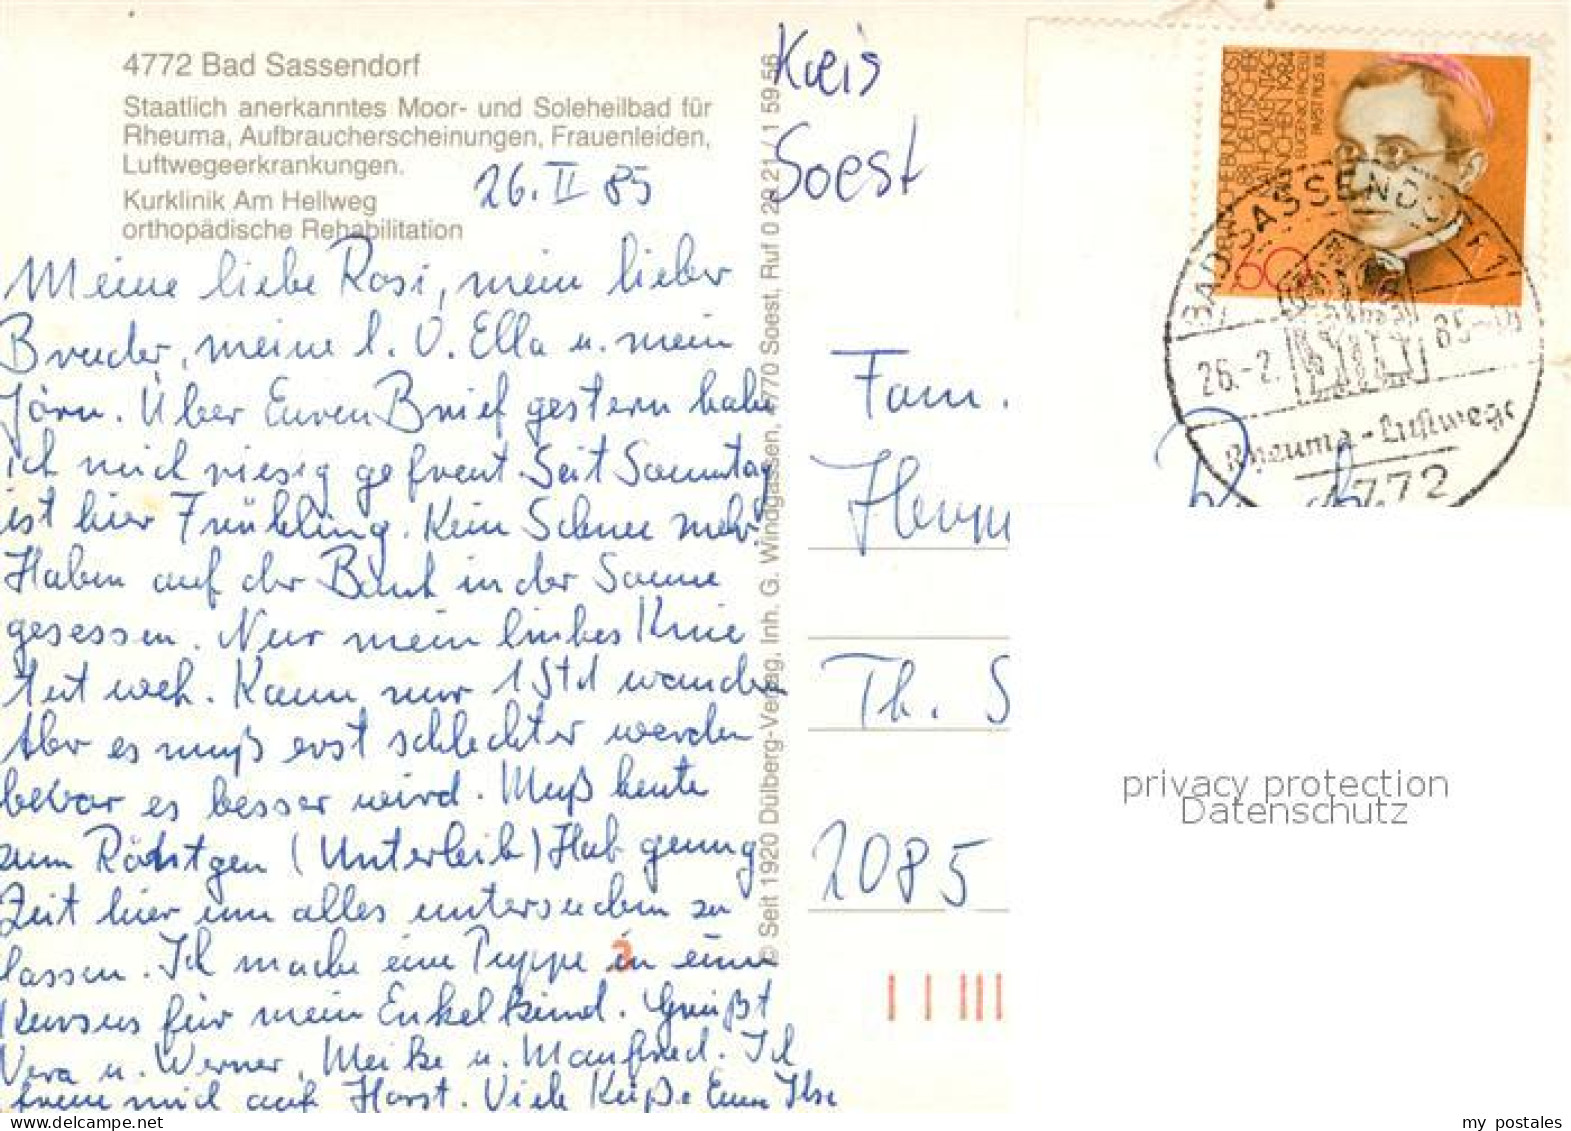 4772 Bad Sassendorf
Staatlich anerkanntes Moor- und Soleheilbad für
Rheuma, Aufbraucherscheinungen, Frauenleiden,
Luftwegeerkrankungen.
Kurklinik Am Hellweg
orthopädische Rehabilitation
26. II 85
Meine liebe Rosi, mein lieber
Bruder, meine l. O. Ella u. mein
Jörn. Über Euren Brief gestern habe
ich mich riesig gefreut. Seit Sonntag
ist hier Frühling. Kein Schnee mehr.
Haben auf der Bank in der Sonne
gesessen. Nur mein linkes Knie
tut weh. Kann nur 1 Std wandern
Aber es muß erst schlechter werden
bevor es besser wird. Muß heute
zum Röntgen (Unterleib) Hab genug
Zeit hier um alles untersuchen zu
lassen. Ich mache eine Puppe in einem
Kursus für mein Enkelkind. Grüßt
Vera u. Werner, Meike u. Manfred. Ich
freue mich auf Horst. Viele Küße Eure Ilse
© Seit 1920 Dülberg-Verlag, Inh. G. Windgassen, 4770 Soest, Ruf 0 29 21 / 1 59 56
Kreis
Soest
DEUTSCHE BUNDESPOST
88. DEUTSCHER
KATHOLIKENTAG
MÜNCHEN 1984
EUGENIO PACELLI
PAPST PIUS XII.
60
BAD SASSENDORF 1
26.-2. 85-
Rheuma - Luftwege
4772
Fam.
Herm
Th. S
2085
privacy protection
Datenschutz
my postales